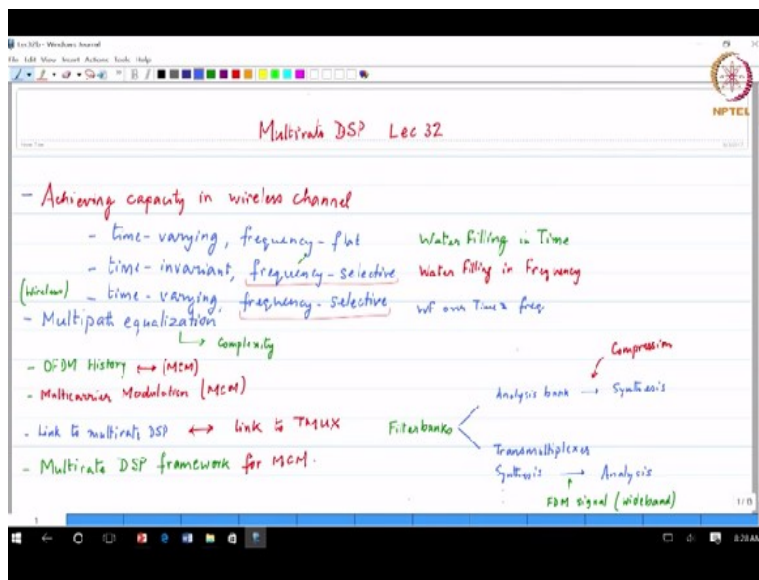 Lec32b - Windows Journal
File Edit View Insert Actions Tools Help
NPTEL
Multirate DSP Lec 32
- Achieving capacity in wireless channel
- time-varying, frequency-flat Water Filling in Time
- time-invariant, frequency-selective Water Filling in Frequency
(Wireless) - time-varying, frequency-selective WF over Time & freq.
- Multipath equalization
↳ Complexity
- OFDM History ↔ (MCM)
- Multicarrier Modulation (MCM)
- Link to multirate DSP ↔ Link to TMUX
- Multirate DSP framework for MCM.
Compression
Analysis bank → Synthesis
Filterbanks
Transmultiplexer
Synthesis → Analysis
FDM signal (wideband)
1
8:28 AM